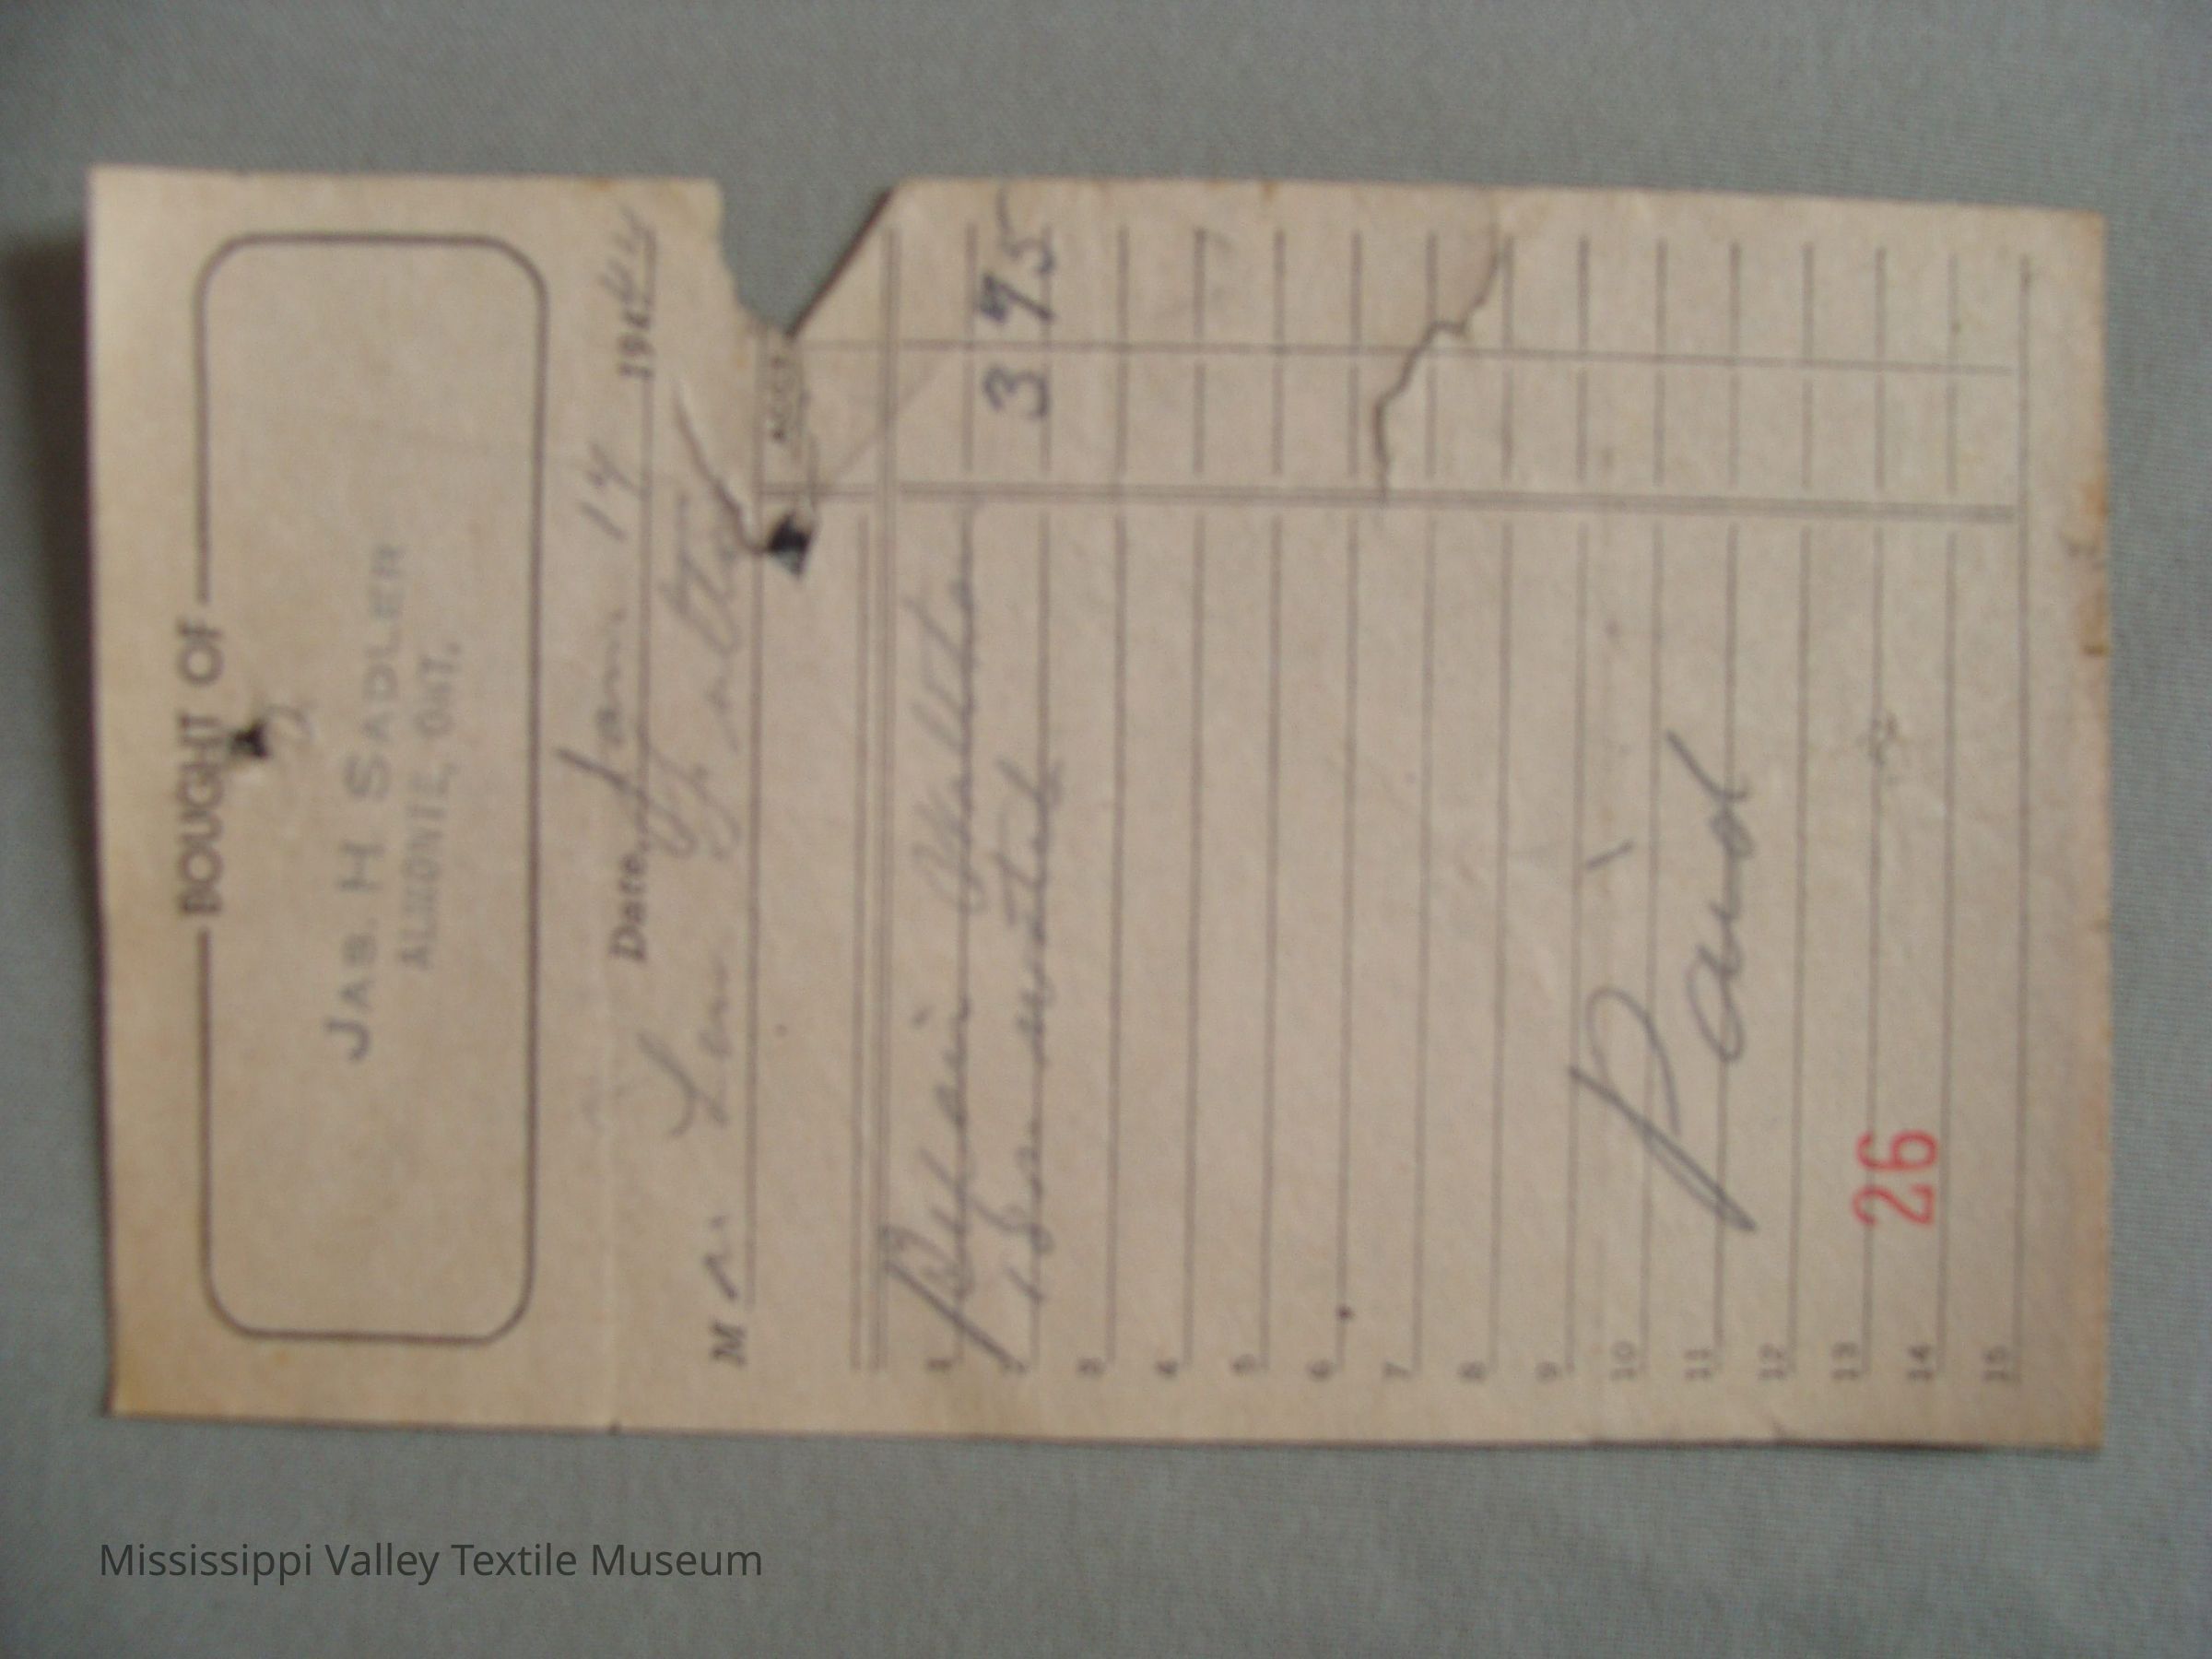 BOUGHT OF
JAS. H SADLER
ALMONTE, ONT.
Date Jan 14 194
M
ACCT.
1 Repair
2 3 95
3
4
5
6
7
8
9
10
11 Paid
12
13
14 26
15
Mississippi Valley Textile Museum